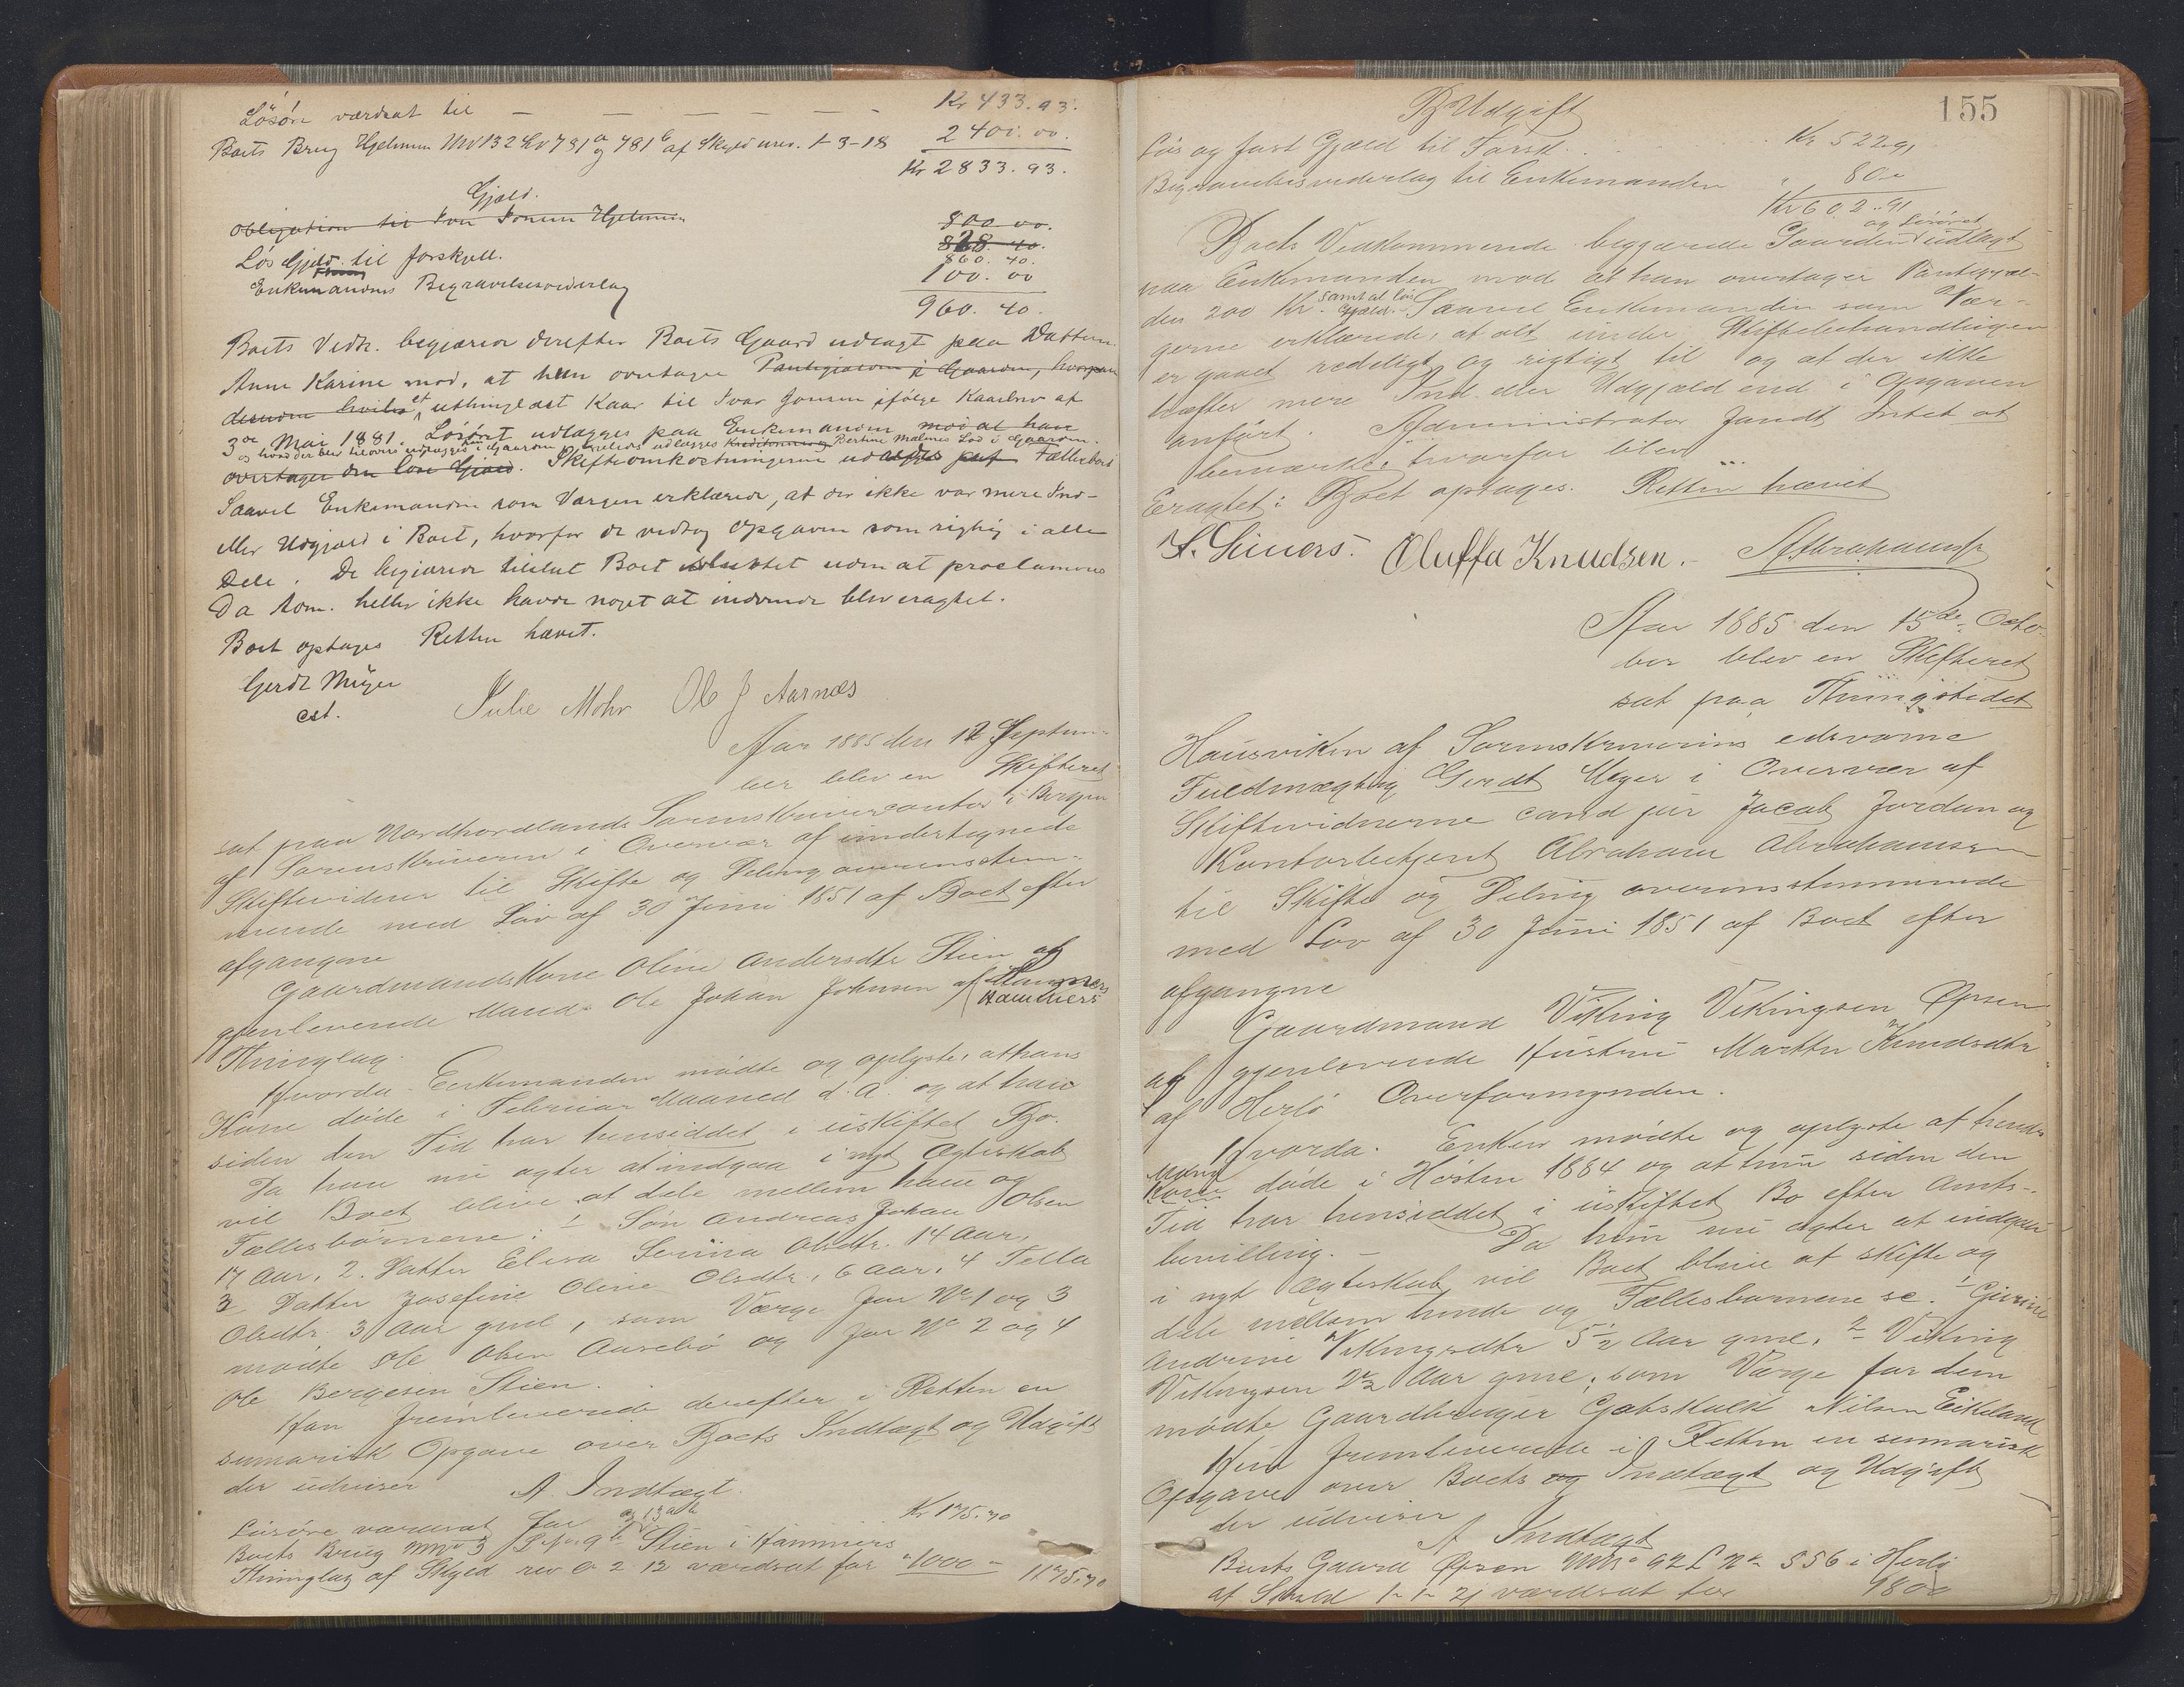 Løsøre værdsat til — — — — — — Kr 433. 93.
Boets Brug Hjelmun MN 132 LN 781 a og 781 b af Skyld urev. 1-3-18 2400. 00.
Kr 2833. 93.
Gjæld.
Obligation til Ivar Jonsen Hjelmun 800. 00.
828. 40.
Løs Gjæld til forskjell. 860. 40.
Enkemandens Begravelsesvederlag 100. 00
960. 40.
Boets Vedk. begjærede derefter Boets Gaard udlagt paa Datteren
Anne Karine mod, at hun overtager Pantegjælden i Gaarden, hvorpaa
desuden hviler et uthinglæst Kaar til Ivar Jonsen ifølge Kaarbrev af
3die Mai 1881. Løsøret udlægges paa Enkemanden mod at han
og hvad der blev tilovers udlægges i Gaarden ligeledes udlægges Kreditorerne og Bertine Malenes Lod i Gaarden.
overtager den løse Gjæld. Skifteomkostningerne udredes af Fællesboet
Saavel Enkemanden som Værgen erklærede, at der ikke var mere Ind-
eller Udgjæld i Boet, hvorfor de vedtog Opgaven som rigtig i alle
Dele. De begjærede tilslut Boet sluttet uden at proclameres
Da Adm. heller ikke havde noget at indvende blev eragtet.
Boet optages Retten hævet.
Gerdt Meyer
cst.
Julie Mohr Ole J Aarnæs
Aar 1885 den 12 Septem-
ber blev en Skifteret
sat paa Nordhordlands Sorenskrivercontor i Bergen
af Sorenskriveren i Overvær af undertegnede
Skiftevidner til Skifte og Deling overensstem-
mende med Lov af 30 Juni 1851 af Boet efter
afgangne
Gaardmandskone Oline Andersdtr Stien af
gjenlevende Mand Ole Johan Johnsen af Hammers
Hammers
Thinglag.
Hvorda Enkemanden mødte og oplyste, at hans
Kone døde i Februar Maaned d. A. og at han
siden den Tid har hensiddet i uskiftet Bo.
Da han nu agter at indgaa i nyt Ægteskab
vil Boet blive at dele mellem ham og
Fællesbørnene: 1 Søn Andreas Johan Olsen
17 Aar, 2. Datter Elesa Serina Olsdtr. 14 Aar,
3 Datter Josefine Oline Olsdtr, 6 Aar, 4 Tella
Olsdtr. 3 Aar gml, som Værge for No 1 og 3
mødte Ole Olsen Aursebø og for No 2 og 4
Ole Bergesen Stien.
Han fremleverede derefter i Retten en
sumarisk Opgave over Boets Indtægt og Udgift
der udviser A. Indtægt.
Løsøre værdsat for Kr 175.70
Boets Brug MNo 3 LNo 9 b og 13 a b Stien i Hammers
Thinglag af Skyld rev 0 2 12 værdsat for " 1000 " 1175.70
155
B Udgift
Løs og fast Gjæld til Forsk. . . . . . Kr 522.91
Begravelsesvederlag til Enkemanden " 80.
Kr 602.91
Boets Vedkommende begjærede Gaarden og Løsøret udlagt
paa Enkemanden mod at han overtager Pantegjæl-
den 200 Kr. samt al løs Gjæld. Saavel Enkemanden som Vær-
gerne erklærede, at alt under Skiftebehandlingen
er gaaet redeligt og rigtigt til og at der ikke
hæfter mere Ind- eller Udgjæld end i Opgaven
anført. Administrator fandt Intet at
bemærke, hvorfor blev
Eragtet: Boet optages. Retten hævet
Oluffa Knudsen. A Abrahamsen
Aar 1885 den 15de Octo-
ber blev en Skifteret
sat paa Thingstedet
Hausviken af Sorenskriverens edsvorne
Fuldmægtig Gerdt Meyer i Overvær af
Skiftevidnerne cand jur Jacob Jordan og
Kontorbetjent Abraham Abrahamsen
til Skifte og Deling overensstemmende
med Lov af 30 Juni 1851 af Boet efter
afgangne
Gaardmand Viking Vikingsen Øpsen
af gjenlevende Hustru Marthe Knudsdtr
af Herlø Overformynderi.
Hvorda. Enken mødte og oplyste at hendes
Mand
Kone døde i Høsten 1884 og at hun siden den
Tid har hensiddet i uskiftet Bo efter Amts-
bevilling. — Da hun nu agter at indgaa
i nyt Ægteskab vil Boet blive at skifte og
dele mellem hende og Fællesbørnene sc. 1 Gurine
Andrine Vikingsdtr 5½ Aar gml, 2 Viking
Vikingsen 2½ Aar gml; som Værge for dem
mødte Gaardbruger Gotskalk Nilsen Eikeland
Hun fremleverede i Retten en sumarisk
Opgave over Boets og Indtægt og Udgift
der udviser
A Indtægt
Boets Gaard Øpsen MNo 92 L No 556 i Herlø
af Skyld 1-1-21 værdsat for 1800